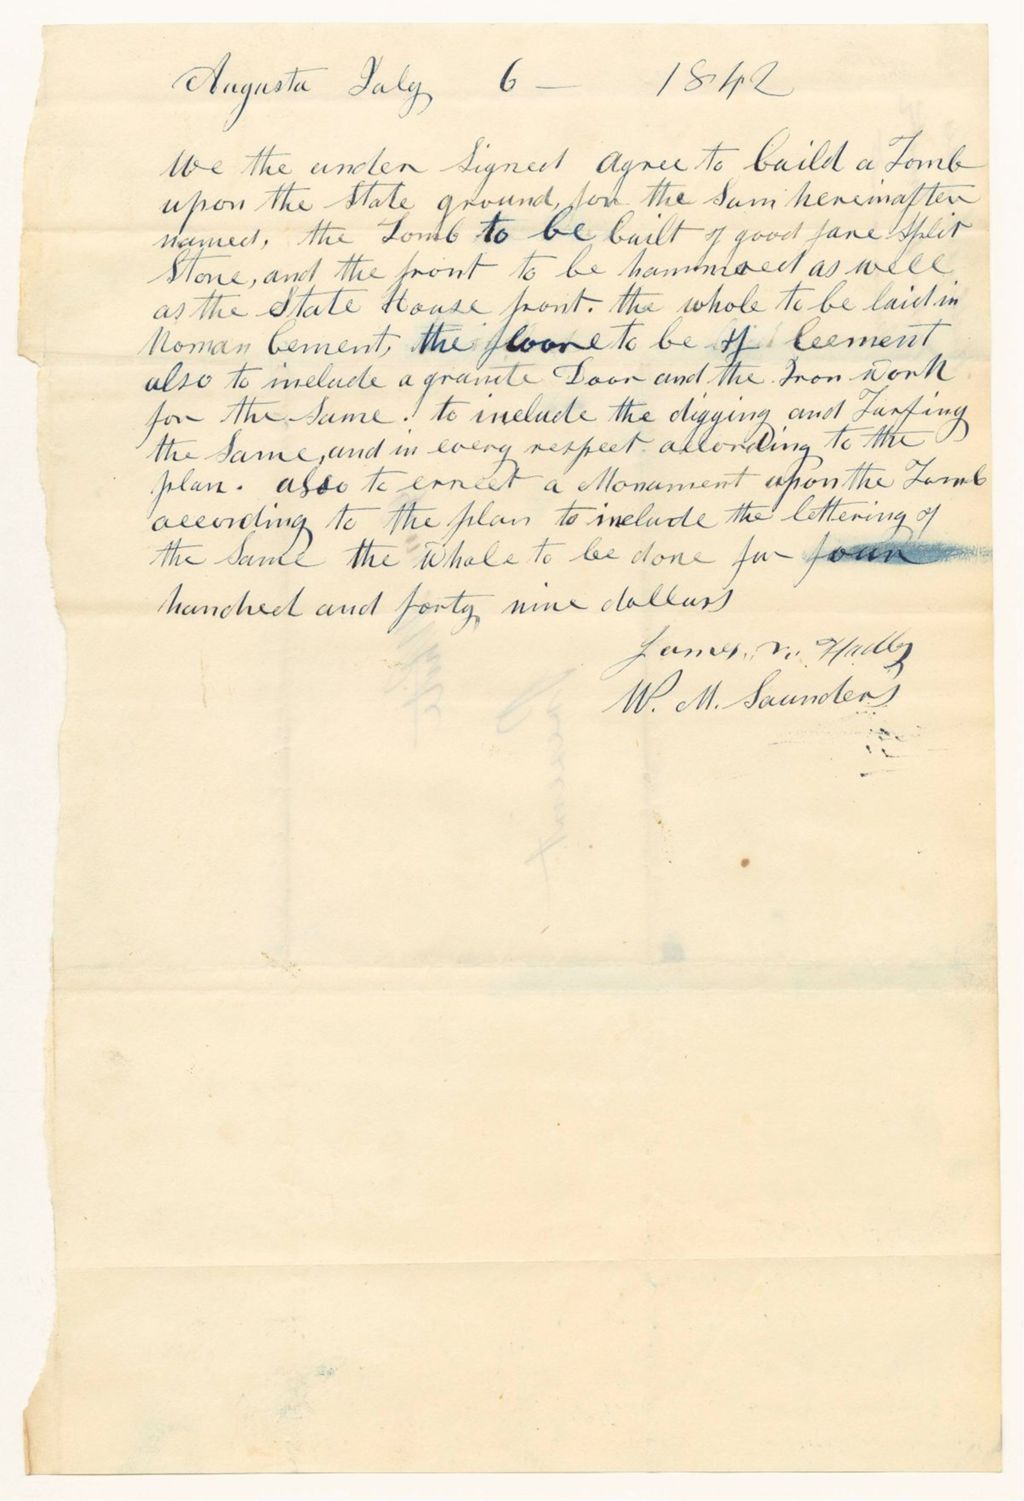 Augusta July 6 — 1842
We the under Signed agree to build a Tomb
upon the State ground, for the Sum hereinafter
named, the Tomb to be built of good fare Split
Stone, and the front to be hammered as well
as the State House front. the whole to be laid in
Roman Cement, the floore to be of Ceement
also to include a granite Door and the Iron Work
for the Same. to include the digging and Turfing
the Same, and in every respect according to the
plan. also to errect a Monament upon the Tomb
according to the plan to include the lettering of
the Same the Whole to be done for four
hundred and forty nine dollars
James. Hadly
W. M. Saunders